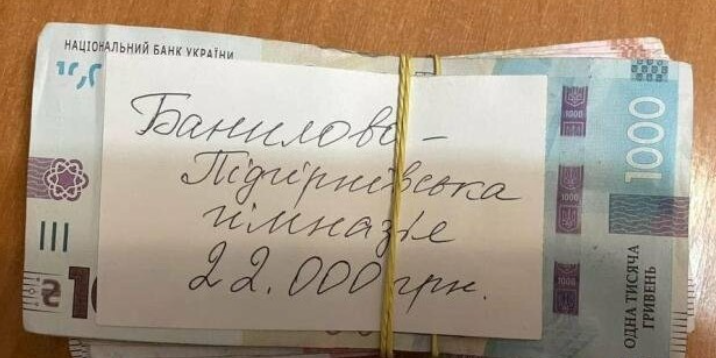 НАЦІОНАЛЬНИЙ БАНК УКРАЇНИ
Банилово-
Підгірнівська
гімназіє
22.000 грн.
1000
1000
1000
1000
ОДНА ТИСЯЧА
ГРИВЕНЬ
₴1